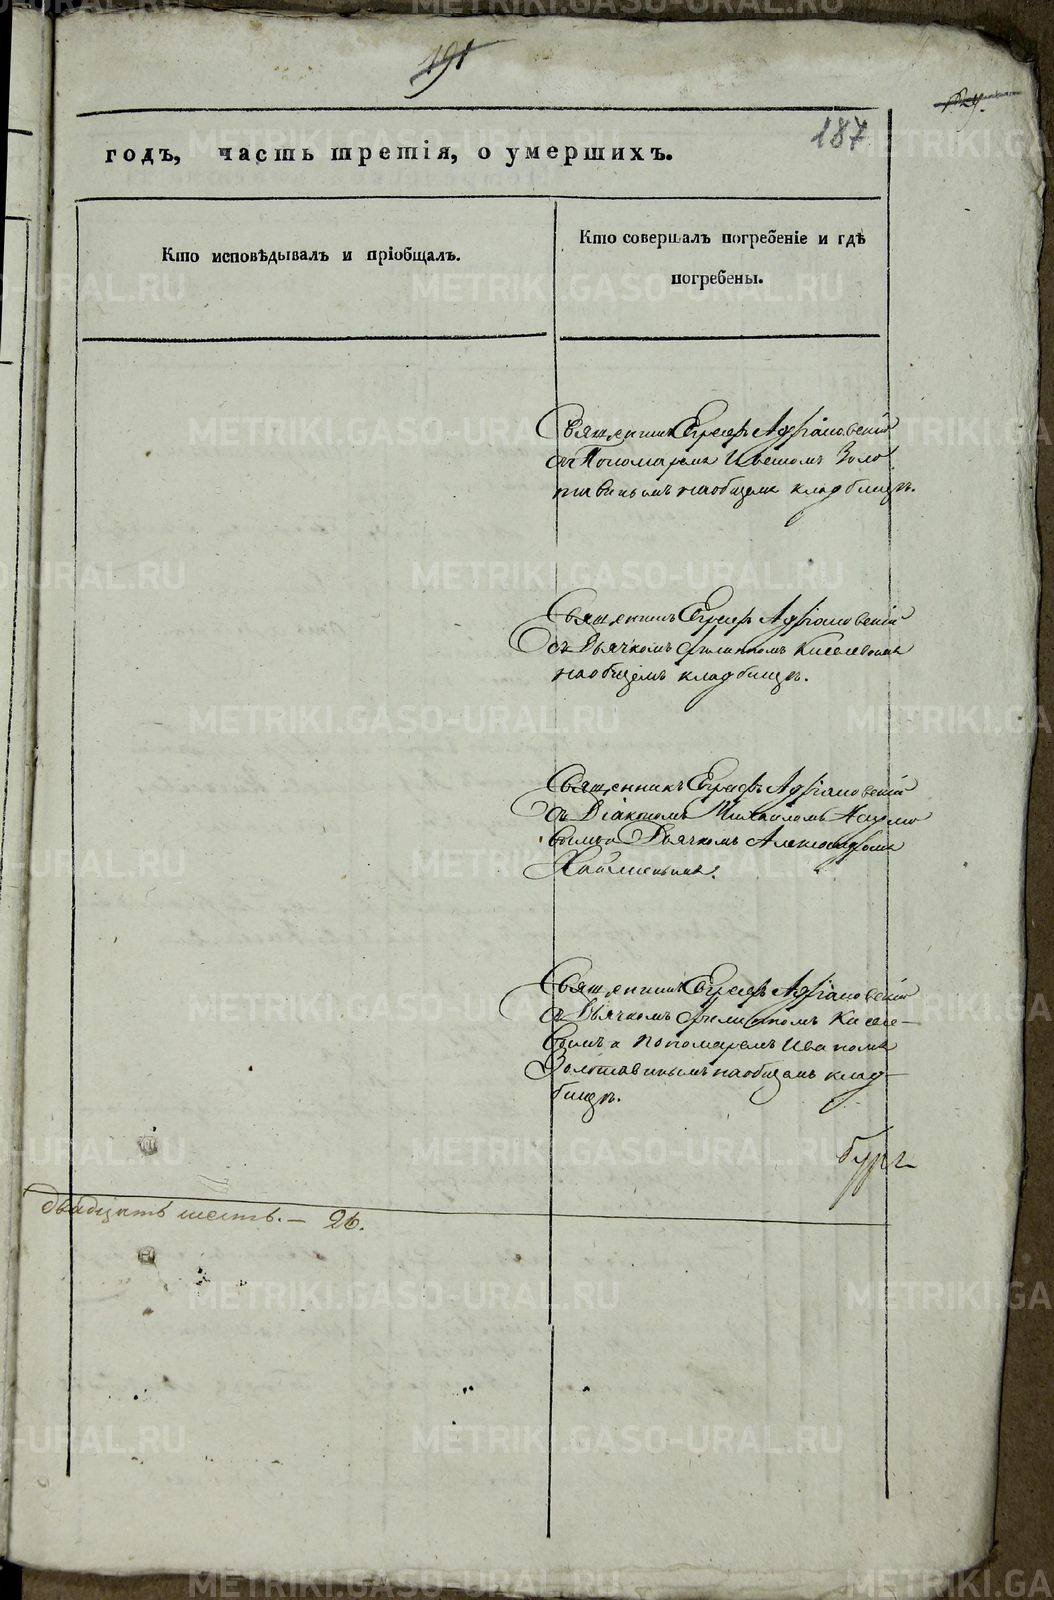 191
187
годъ, часть третія, о умершихъ.
Кто исповѣдывалъ и пріобщалъ.
Кто совершалъ погребеніе и гдѣ
погребены.
Священникъ Евграфъ Адріановскій
съ Пономаремъ Иваномъ Золо
тавинымъ на общемъ кладбищѣ.
Священникъ Евграфъ Адріановскій
съ Дьячкомъ Филиппомъ Киселевымъ
на общемъ кладбищѣ.
Священникъ Евграфъ Адріановскій
съ Діакономъ Михаиломъ Наумо
вымъ и Дьячкомъ Александромъ
Священникъ Евграфъ Адріановскій
съ Дьячкомъ Филиппомъ Кисе-
левымъ и Пономаремъ Иваномъ
Золотавинымъ на общемъ клад-
бищѣ.
двадцать шесть. — 26.
METRIKI.GASO-URAL.RU